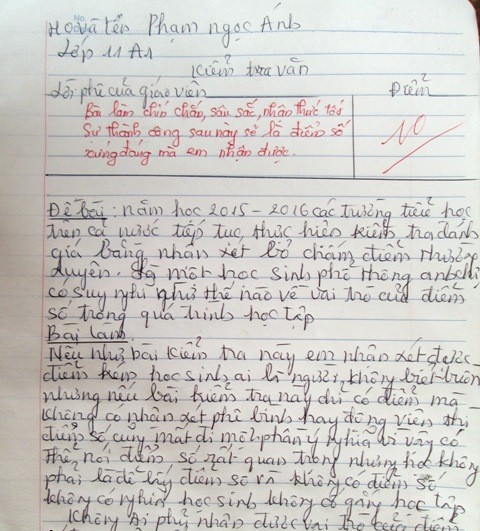 Họ và tên Phạm ngọc Ánh
Lớp 11 A1
Kiểm tra văn
Lời phê của giáo viên Điểm
Bài làm chín chắn, sâu sắc, nhận thức tốt
Sự thành công sau này sẽ là điểm số
xứng đáng mà em nhận được.
Đề bài: năm học 2015 - 2016 các trường tiểu học
trên cả nước tiếp tục thực hiện kiểm tra đánh
giá bằng nhận xét bỏ chấm điểm thường
xuyên. Là một học sinh phổ thông anh chị
có suy nghĩ như thế nào về vai trò của điểm
số trong quá trình học tập
Bài làm
Nếu như bài kiểm tra này em nhận xét được
điểm kém học sinh ai là người không biết buồn
nhưng nếu bài kiểm tra này chỉ có điểm mà
không có nhận xét phê bình hay động viên thì
điểm số cũng mất đi một phần ý nghĩa vì vậy có
thể nói điểm số rất quan trọng nhưng học không
phải là để lấy điểm số và không có điểm số
không có nghĩa học sinh không cố gắng học tập
Không ai phủ nhận được vai trò của điểm